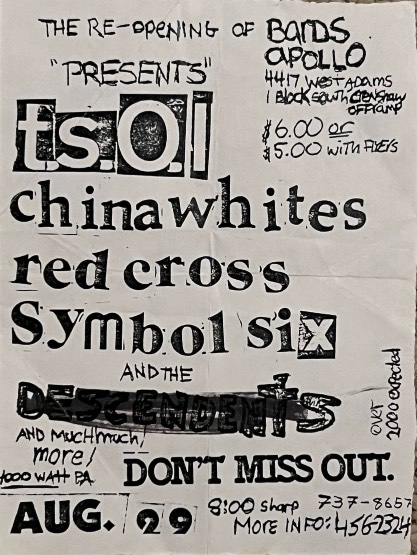 THE RE-OPENING OF BARDS APOLLO
"PRESENTS"
4417 WEST ADAMS
1 Block south CRENSHAW
OFFramp
$6.00 or
$5.00 with FlyERS
t.s.O.l
chinawhites
red cross
Symbol six
AND THE
DESCENDENTS
over 2000 expected
AND MUCH much,
more!
1000 WATT P.A.
DON'T MISS OUT.
AUG. 29
8:00 sharp 737-8657
MORE INFO: 456-2324